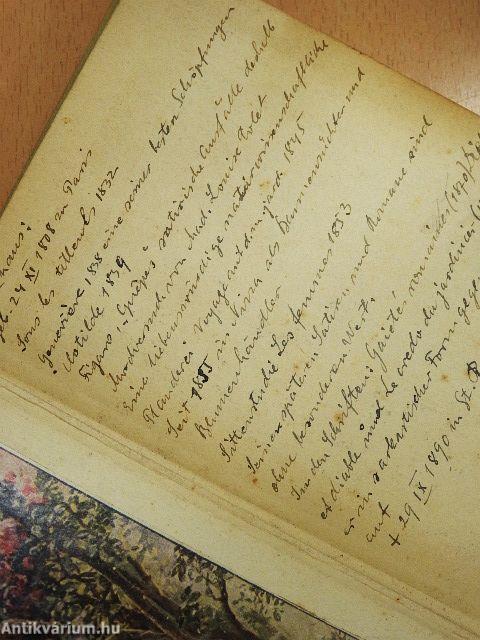 geb. 24 XI 1808 in Paris
Sous les tilleuls 1832
Geneviève 1838 eine seiner besten Schöpfungen
Clotilde 1839
Figaro! - Guêpes satirische Ausfälle deshalb
Mordversuch von Mad. Louise Colet
Eine liebenswürdige naturwissenschaftliche
Plauderei Voyage aut. d. m. jard. 1845
Seit 1855 in Nizza als Blumenzüchter und
Blumenhändler
Sittenstudie Les femmes 1853
Seine späteren Satiren und Romane sind
ohne besonderen Wert.
In den Schriften: Gaietés romaines (1870)
et diable und Le credo du jardinier
er in sarkastischer Form gegen
auf
+ 29 IX 1890 in St.
Antikvárium.hu